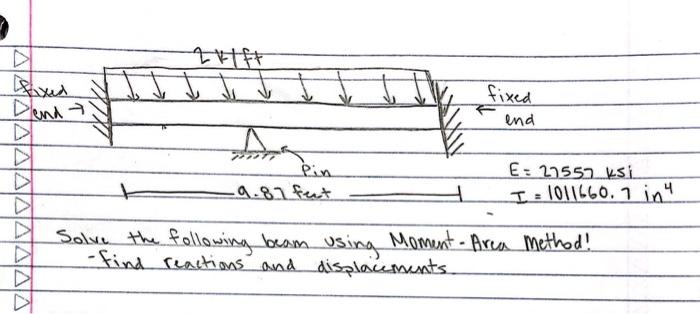 2 k/ft
fixed
end →
fixed
← end
Pin
9.87 feet
E = 27557 ksi
I = 1011660.7 in⁴
Solve the following beam using Moment-Area Method!
- find reactions and displacements.